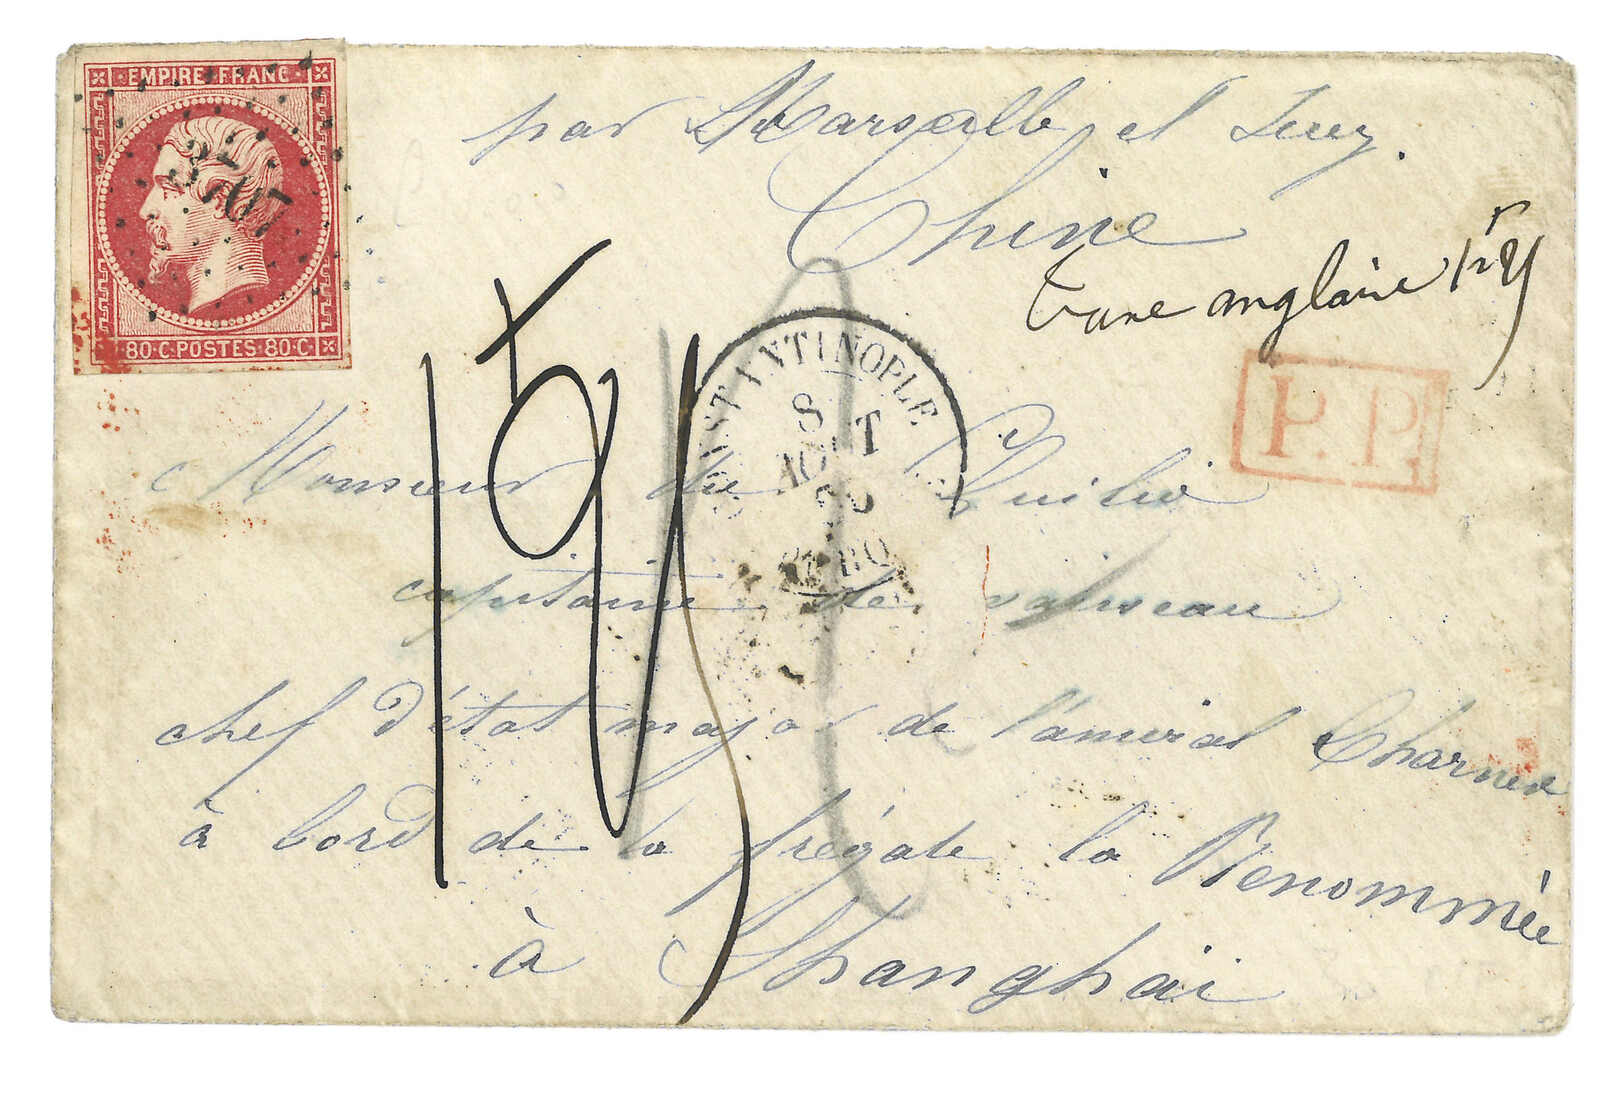 EMPIRE FRANC
3707
80·C·POSTES·80·C·
par Marseille et Suez.
Chine
taxe anglaise
P.P.
CONSTANTINOPLE
8
AOUT
60
Monsieur du Quilio
capitaine de vaisseau
chef d'état major de l'amiral Charner
à bord de la frégate la Renommée
à Shanghai